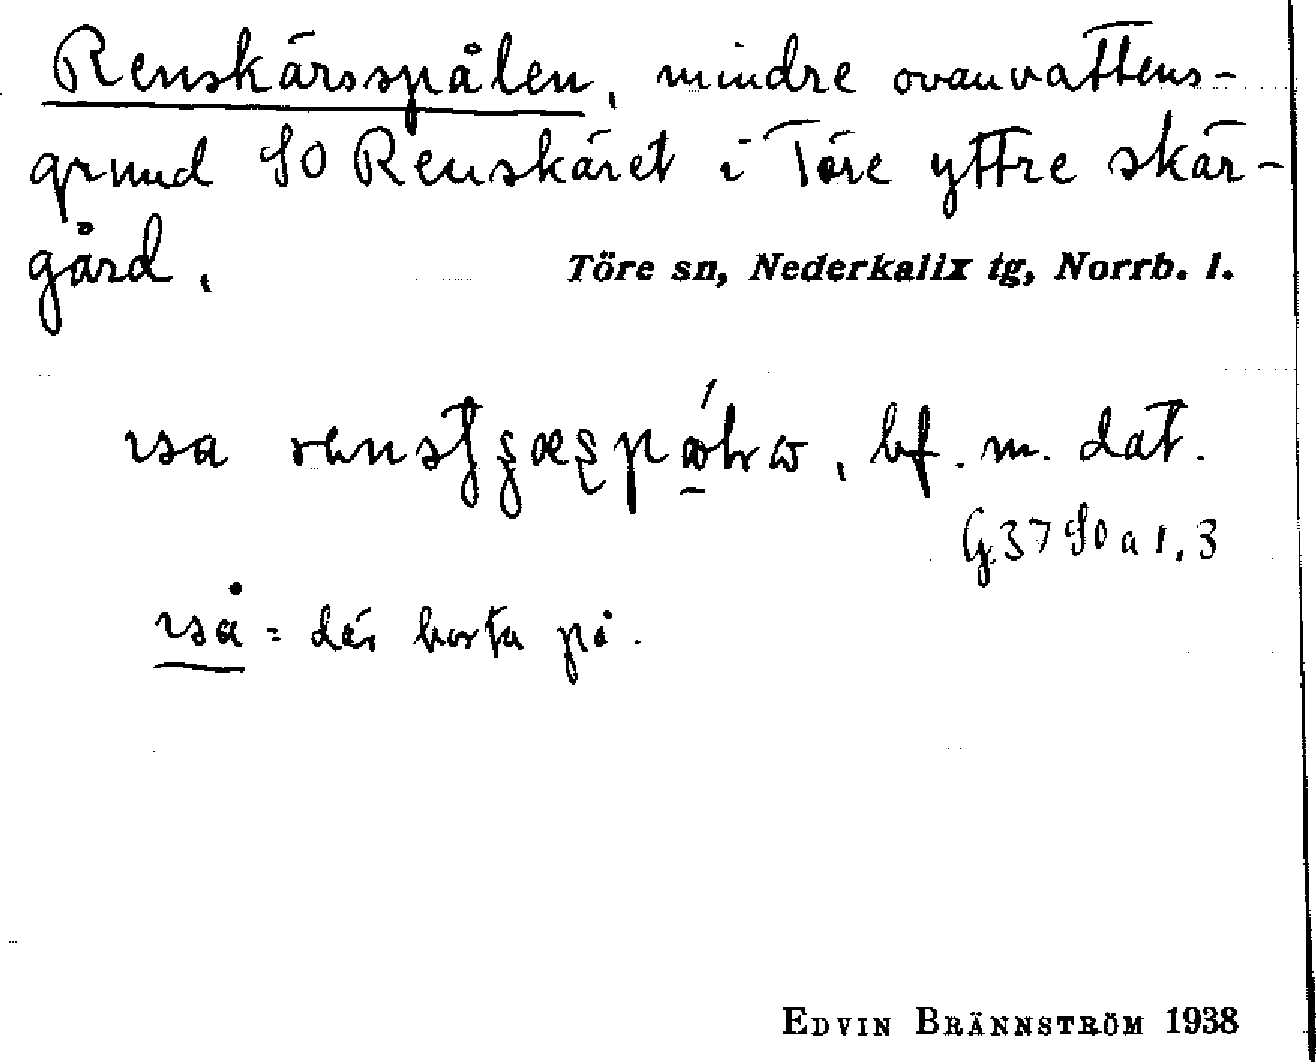 Renskärsspålen, mindre ovanvattens-
grund SO Renskäret i Töre yttre skär-
gård.
Töre sn, Nederkalix tg, Norrb. l.
bf. m. dat.
G.37 SO a 1.3
iså = där borta på.
EDVIN BRÄNNSTRÖM 1938